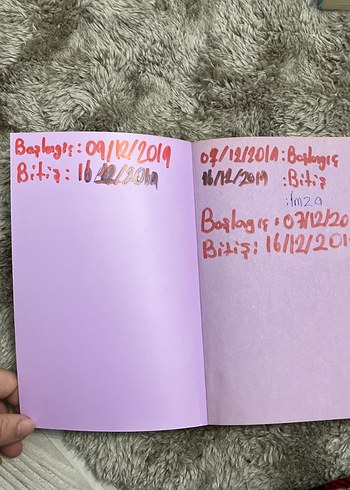 Başlangıç : 09/12/2019
Bitiş : 16/12/2019
07/12/2019 : Başlangıç
16/12/2019 : Bitiş
: İmza
Başlangıç : 07/12/20
Bitiş : 16/12/201